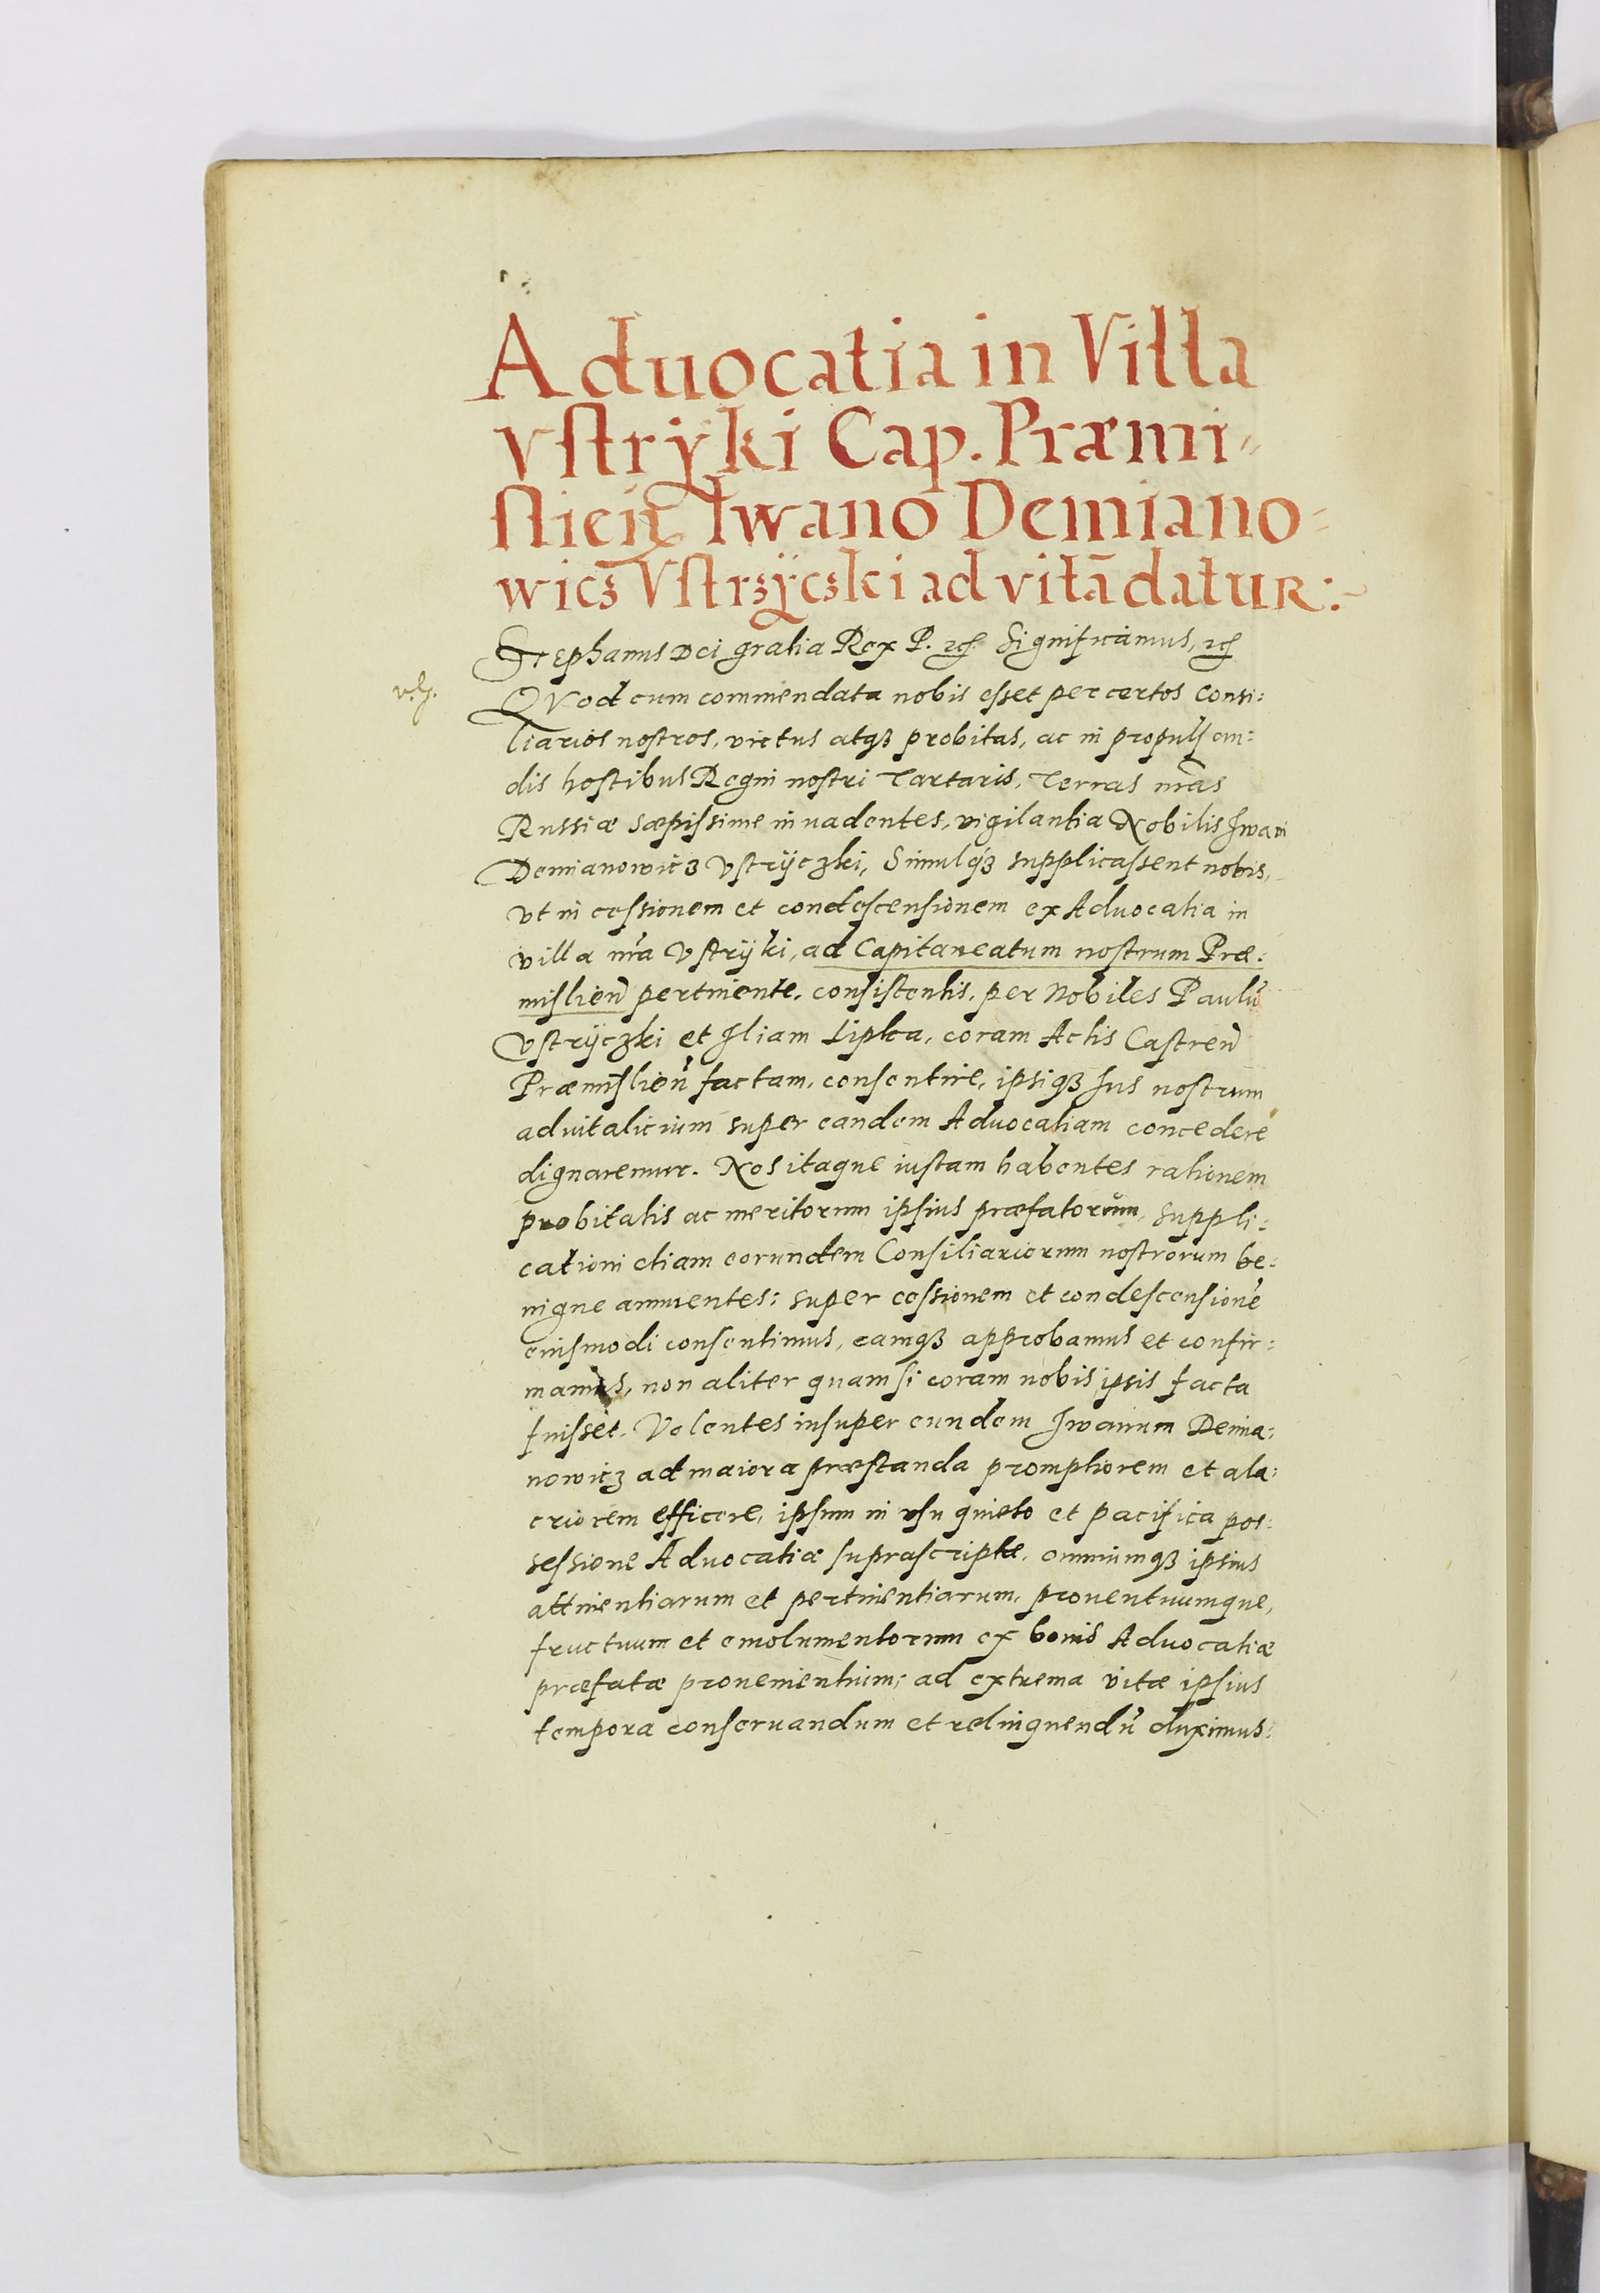 Aduocatia in Villa
Vstrÿki Cap. Præmi-
slień Iwano Demiano-
wicz Vstrzÿczki ad vitā datur:
Stephanus Dei gratia Rex P. etc. Significamus, etc.
QVod cum commendata nobis esset per certos Consi:
liarios nostros, virtus atq3 probitas, ac in propulsan:
dis hostibus Regni nostri Tartaris, Terras nr̃as
Russiæ sæpissime inuadentes, vigilantia Nobilis Iwani
Demianowicz Vstrÿczki, Simulq3 supplicassent nobis,
vt in cessionem et condescensionem ex Aduocatia in
villa nr̃a Vstrÿki, ad Capitaneatum nostrum Præ:
mislieñ pertinente, consistentis, per Nobiles Paulũ
Vstrÿczki et Iliam Lipka, coram Actis Castreñ
Præmislieñ factam, consentire, ipsiq3 Ius nostrum
aduitalicium super eandem Aduocatiam concedere
dignaremur. Nos itaque iustam habentes rationem
probitatis ac meritorum ipsius præfatorum, suppli:
cationi etiam eorundem Consiliariorum nostrorum be:
nigne annuentes: super cessionem et condescensionẽ
eiusmodi consentimus, eamq3 approbamus et confir:
mamus, non aliter quam si coram nobis ipsis facta
fuisset. Volentes insuper eundem Iwanum Demia:
nowicz ad maiora præstanda promptiorem et ala:
criorem efficere, ipsum in vsu quieto et pacifica pos:
sessione Aduocatiæ suprascriptæ, omniumq3 ipsius
attinentiarum et pertinentiarum, prouentuumque,
fructuum et emolumentorum ex bonis Aduocatiæ
præfatæ prouenientium; ad extrema vitæ ipsius
tempora conseruandum et relinquendũ duximus: